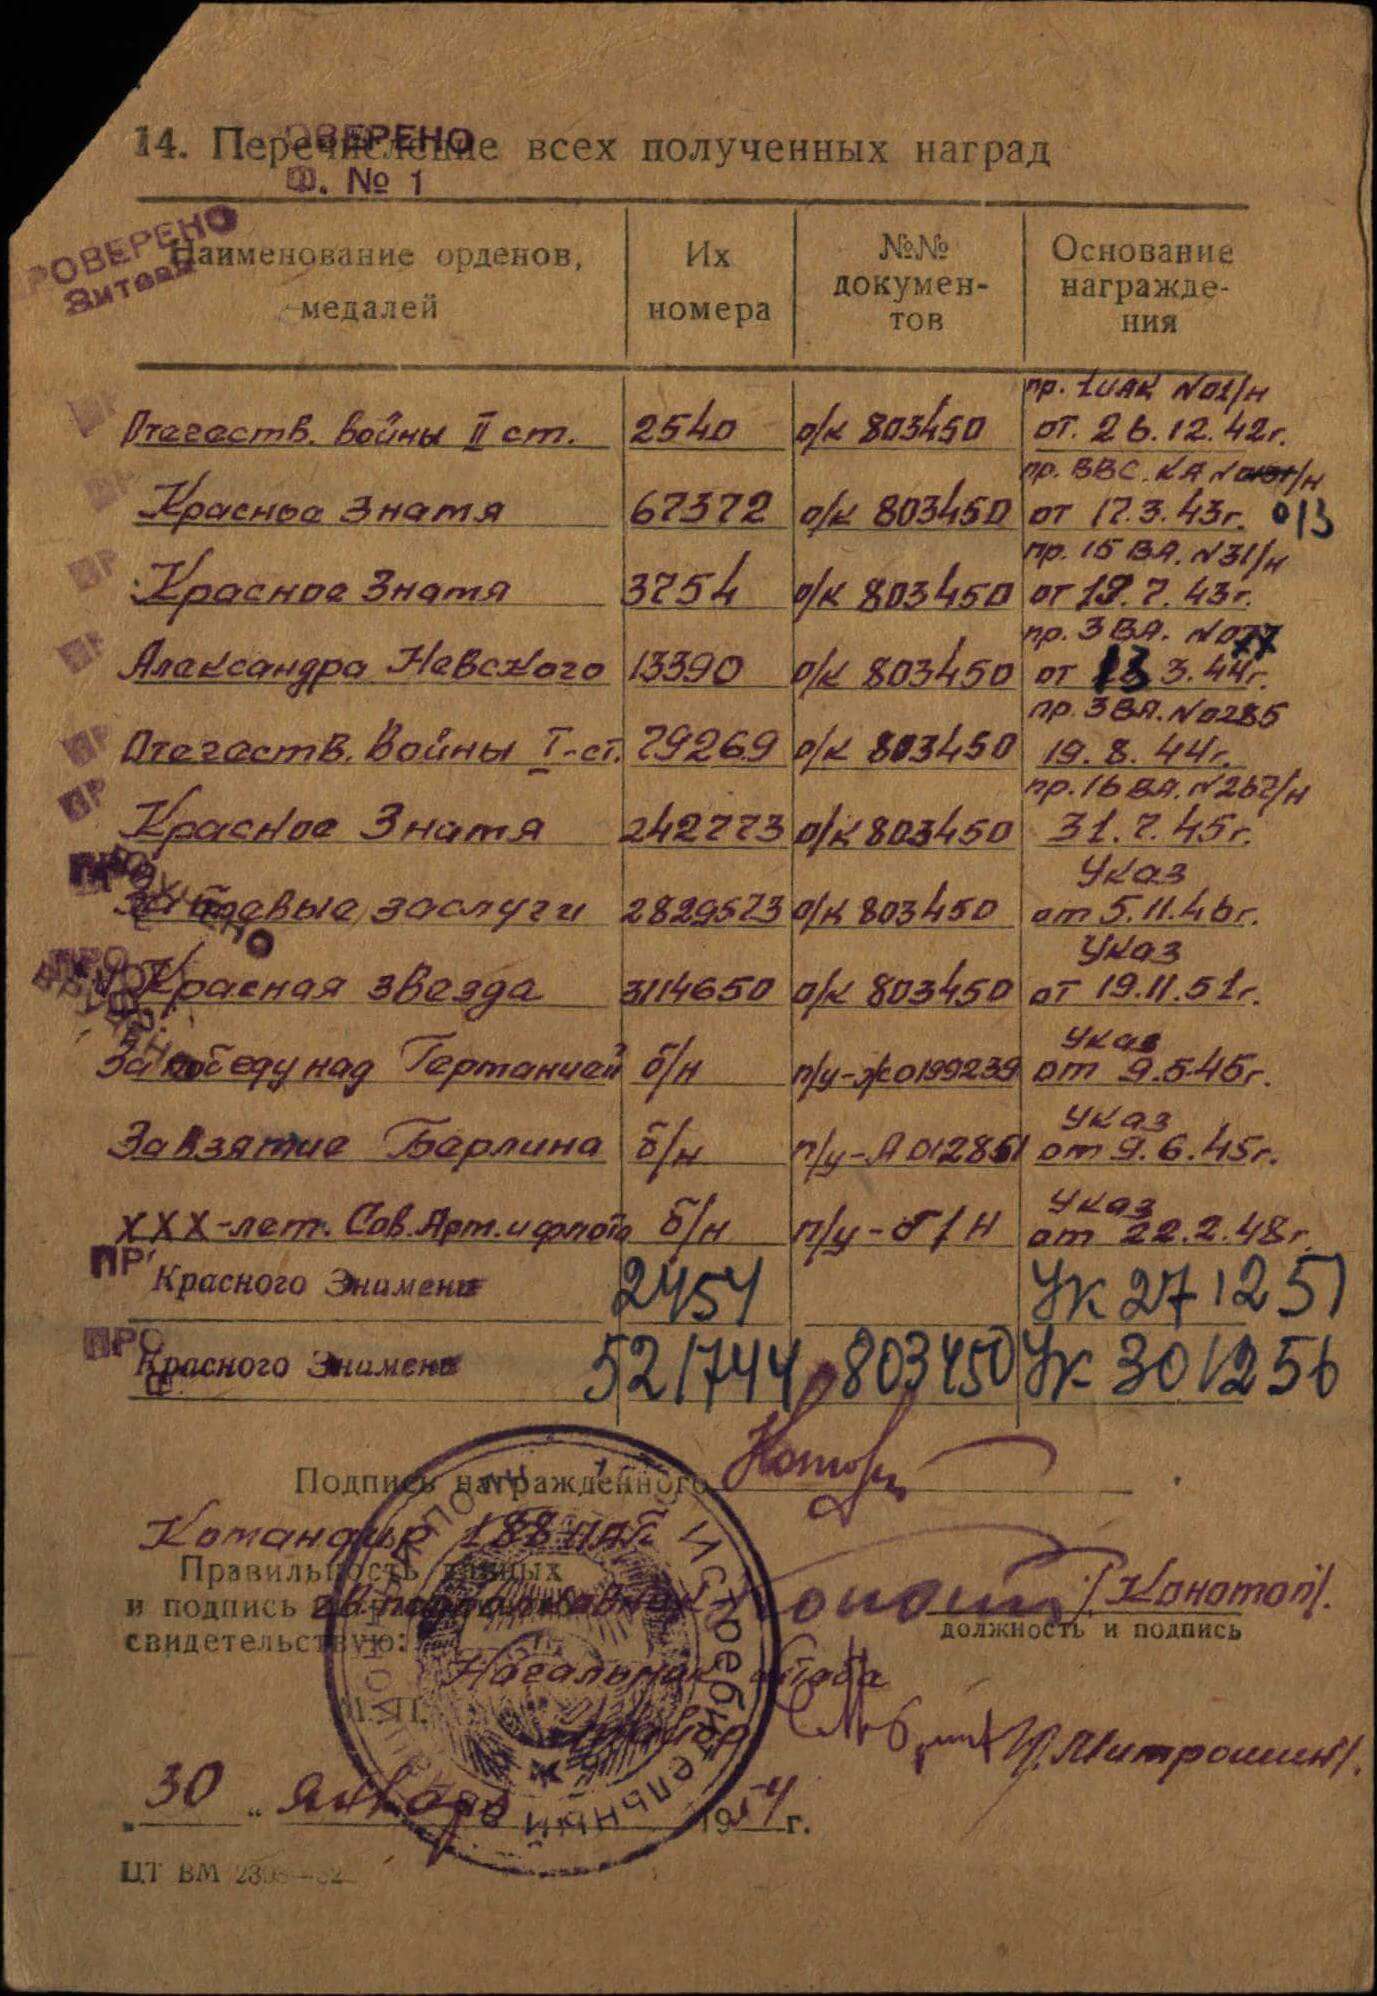 14. Перечисление всех полученных наград
ОВЕРЕНО
Ф. № 1
РОВЕРЕНО
Наименование орденов, медалей | Их номера | №№ документов | Основание награждения
пр. 1 UAK N01/н
Отечеств. войны II ст. 2540 о/к 803450 от. 26.12.42г.
пр. ВВС. КА N /н
Красное Знамя 67372 о/к 803450 от 17.3.43г. 013
пр. 15 ВА. N31/н
Красное Знамя 3754 о/к 803450 от 19.7.43г.
пр. 3 ВА. N077
Александра Невского 13390 о/к 803450 от 13 3.44г.
пр. 3 ВА. N0285
Отечеств. Войны I-ст. 79269 о/к 803450 19.8.44г.
пр. 16 ВА. N267/н
Красное Знамя 242773 о/к 803450 31.7.45г.
Указ
За боевые заслуги 2829573 о/к 803450 от 5.11.46г.
Указ
Красная звезда 3114650 о/к 803450 от 19.11.51г.
Указ
За победу над Германией б/н п/у-Ж0199239 от 9.5.45г.
Указ
За взятие Берлина б/н п/у-А 012851 от 9.6.45г.
Указ
XXX-лет. Сов. Арм. и флота б/н п/у-б/н от 22.2.48г.
Красного Знамени 2454 УК 271251
Красного Знамени 521744 803450 УК 301256
Подпись награжденного
Командир 188
Правильность данных
и подпись
свидетельствую:
/Конотоп/.
должность и подпись
Начальник штаба
М. П.
майор /Митрошин/.
„30“ января 1954 г.
ЦТ ВМ